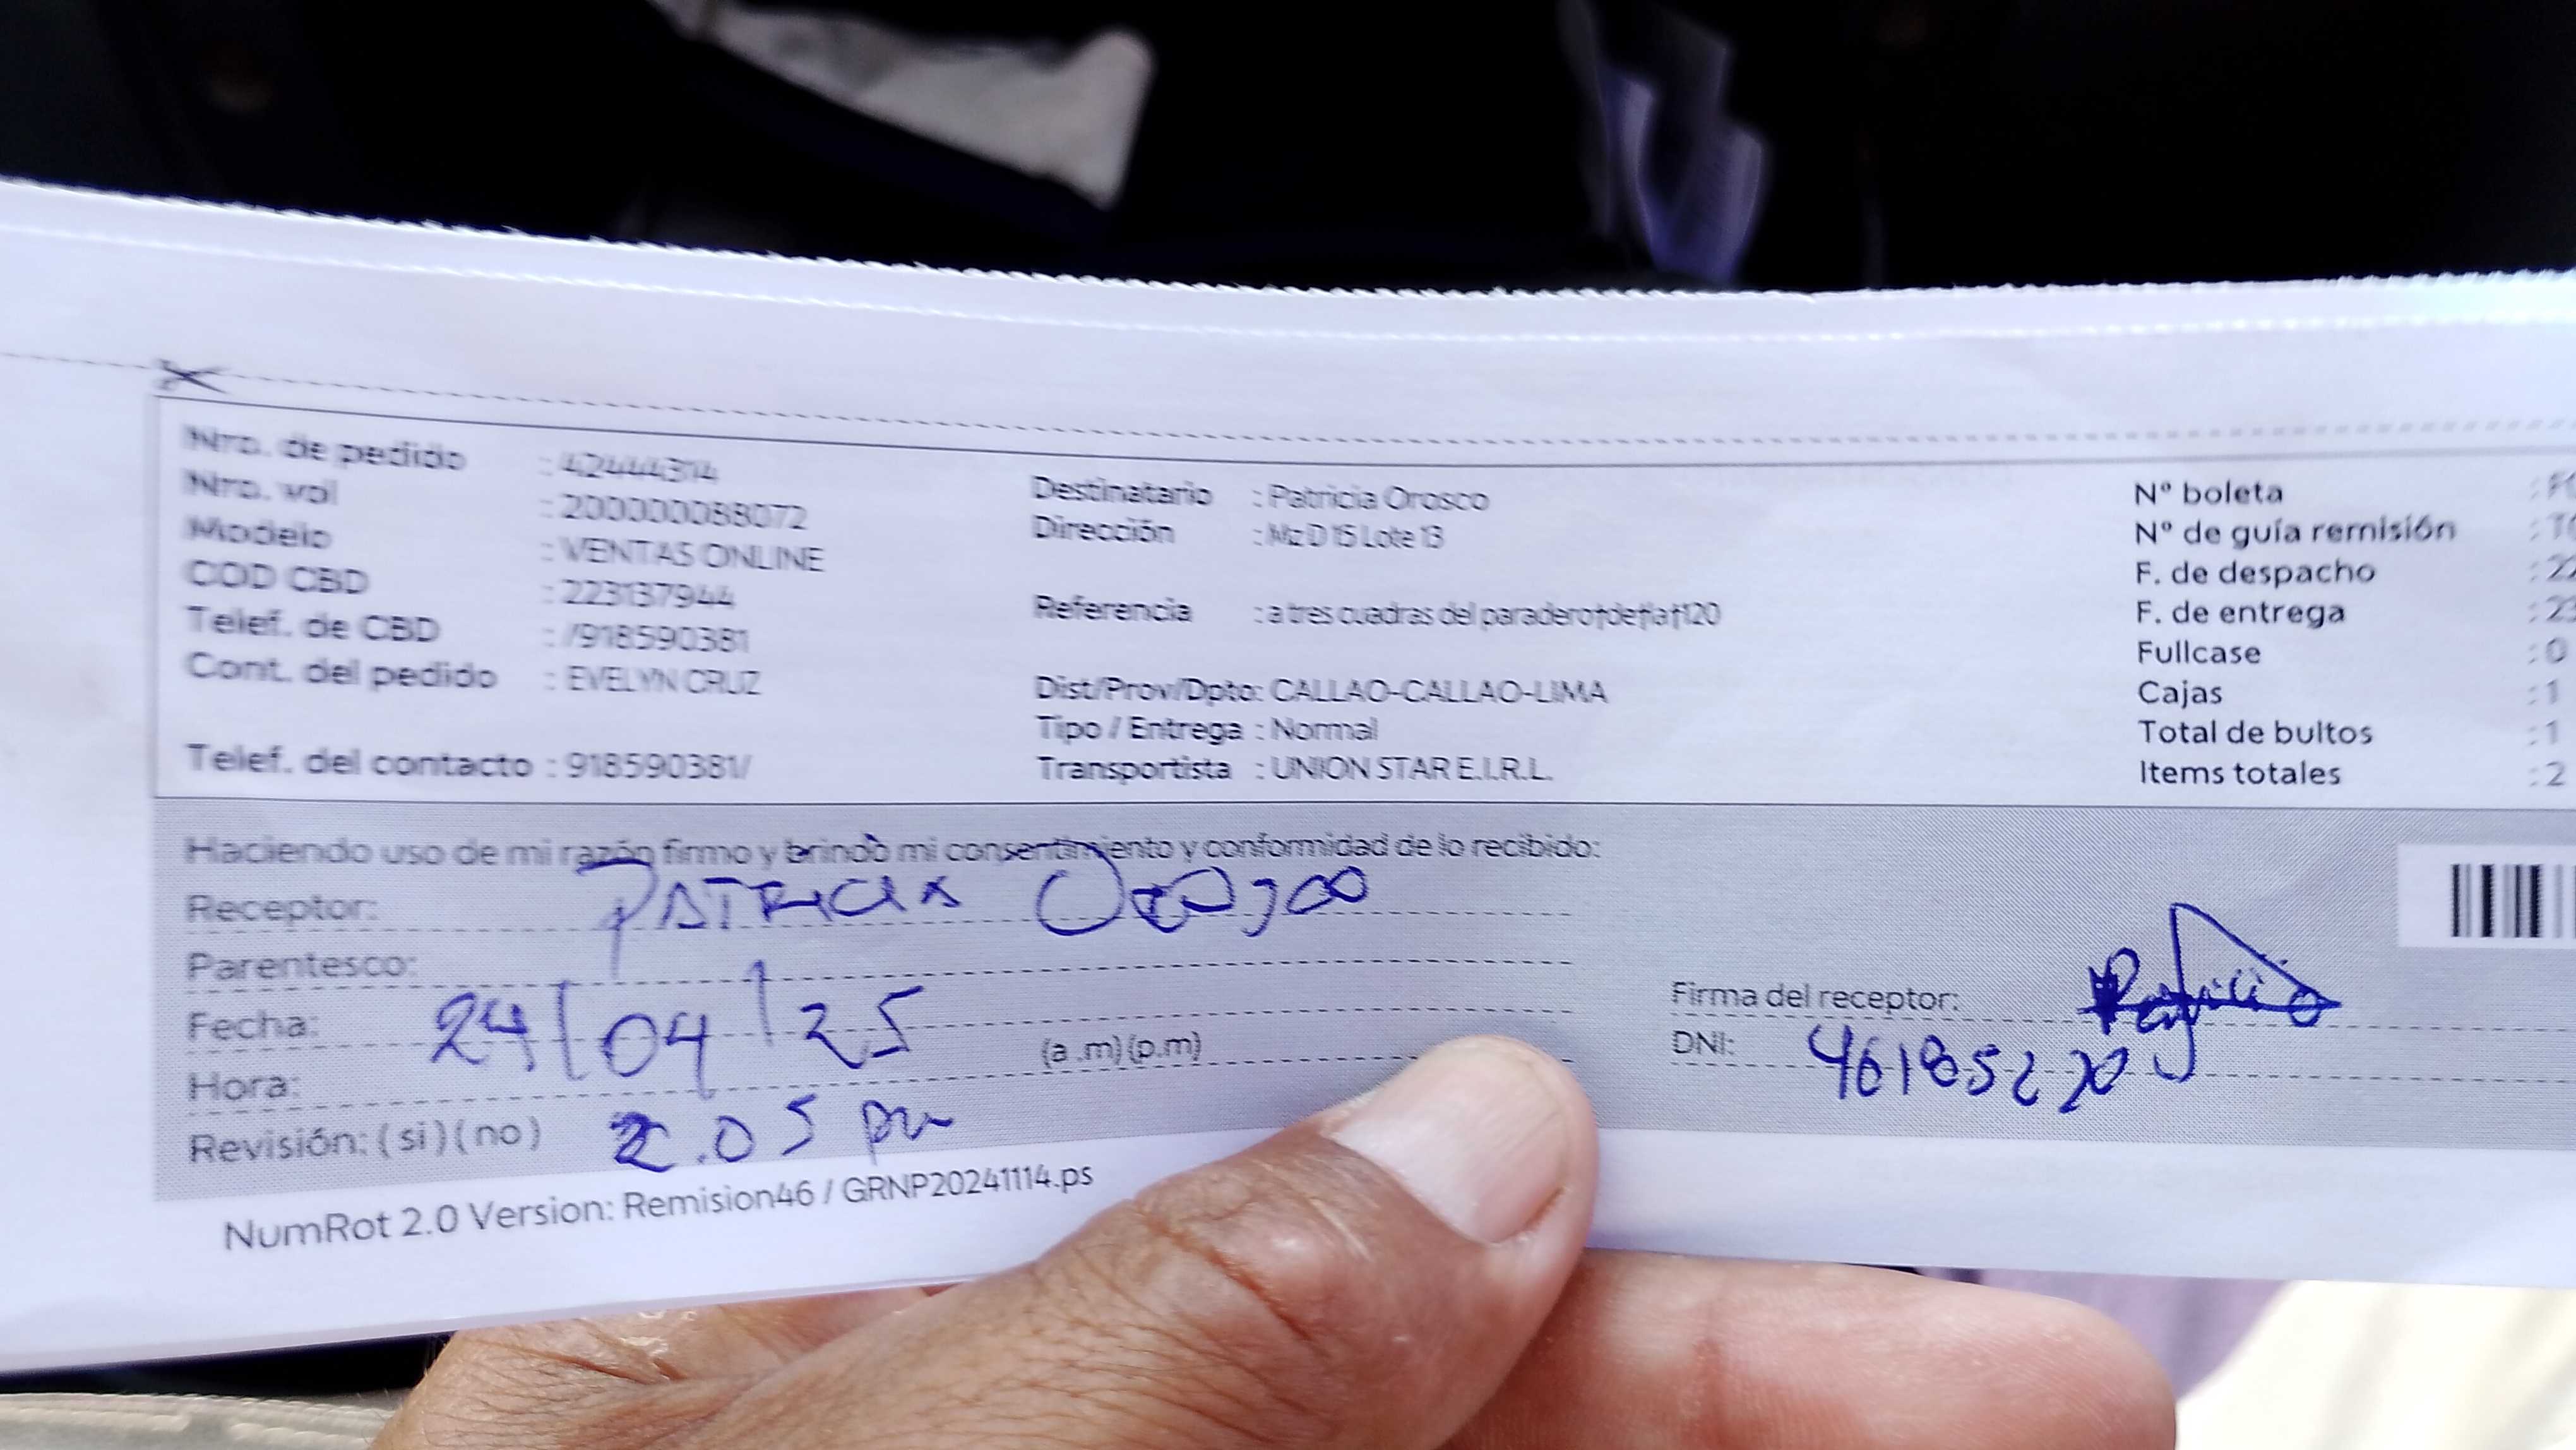 Nro. de pedido : 42444314
Nro. vol : 200000088072
Modelo : VENTAS ONLINE
COD CBD : 223137944
Telef. de CBD : /918590381
Cont. del pedido : EVELYN CRUZ
Telef. del contacto : 918590381/
Destinatario : Patricia Orosco
Dirección : Mz D 15 Lote 13
Referencia : a tres cuadras del paradero†de†la†120
Dist/Prov/Dpto: CALLAO-CALLAO-LIMA
Tipo / Entrega : Normal
Transportista : UNION STAR E.I.R.L.
Nº boleta :
Nº de guía remisión :
F. de despacho : 22
F. de entrega : 23
Fullcase : 0
Cajas : 1
Total de bultos : 1
Items totales : 2
Haciendo uso de mi razón firmo y brindo mi consentimiento y conformidad de lo recibido:
Receptor: PATRICIA
Parentesco:
Fecha: 24/04/25
Hora: (a .m)(p.m)
Revisión: ( si ) ( no ) 2.05 pm
Firma del receptor:
DNI:
NumRot 2.0 Version: Remision46 / GRNP20241114.ps